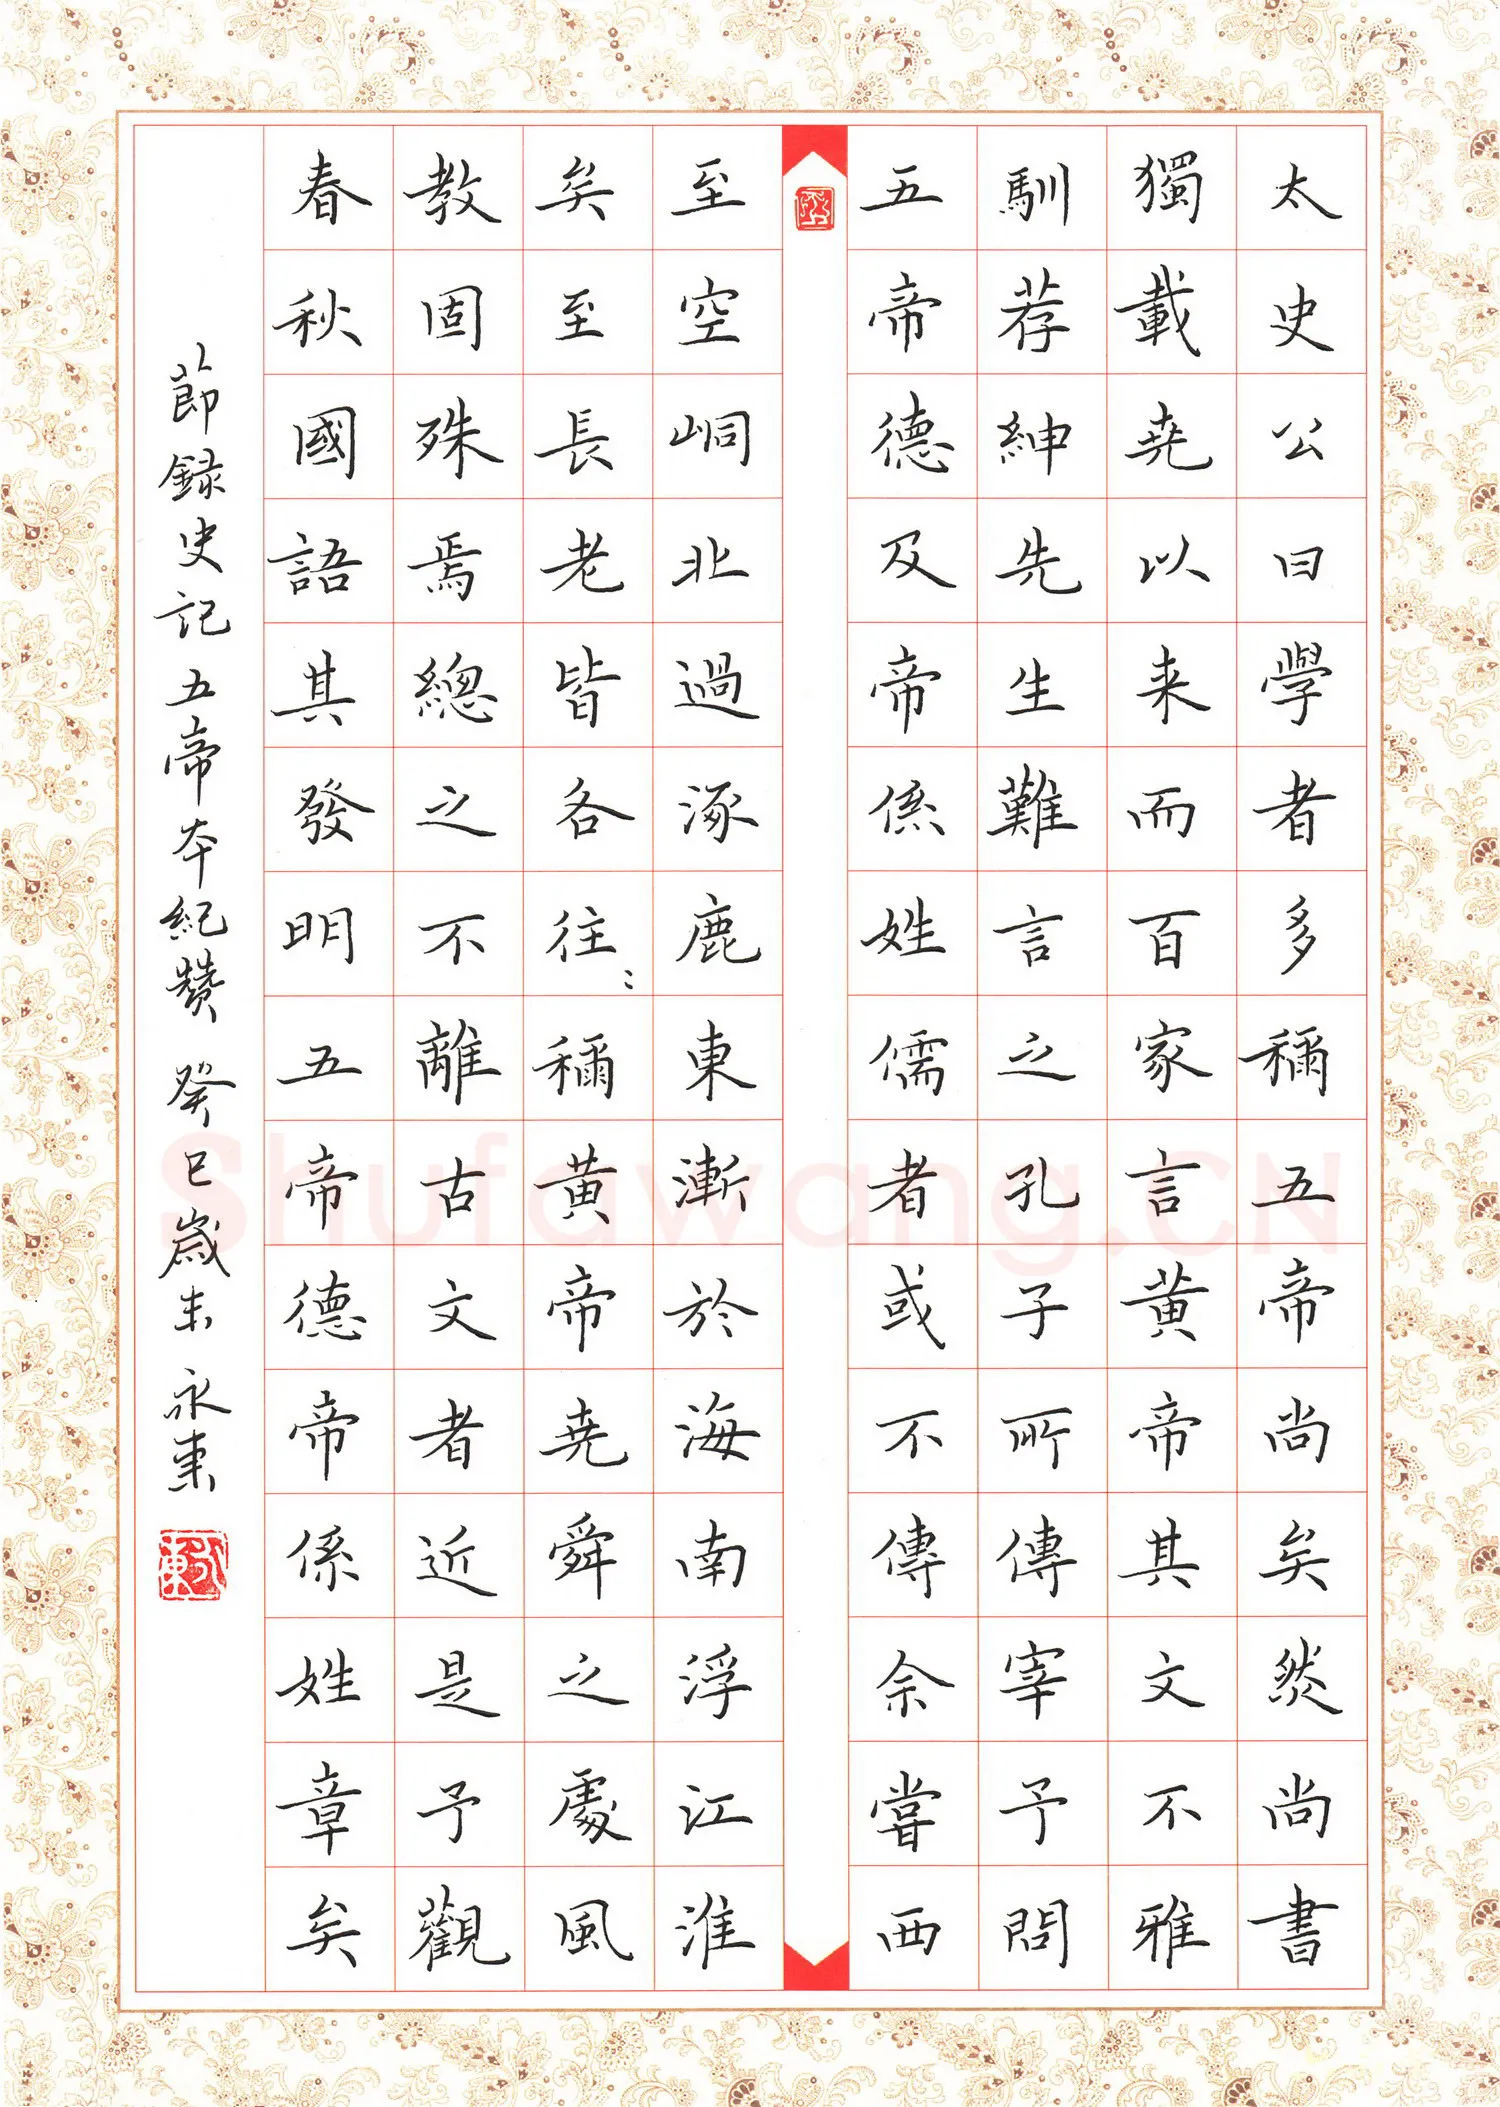 太史公曰學者多稱五帝尚矣然尚書
獨載堯以来而百家言黄帝其文不雅
馴荐紳先生難言之孔子所傳宰予問
五帝德及帝係姓儒者或不傳余嘗西
至空峒北過涿鹿東漸於海南浮江淮
矣至長老皆各往々稱黄帝堯舜之處風
教固殊焉總之不離古文者近是予觀
春秋國語其發明五帝德帝係姓章矣
節録史記五帝本紀贊 癸巳歲末 永東
Shufawang.CN